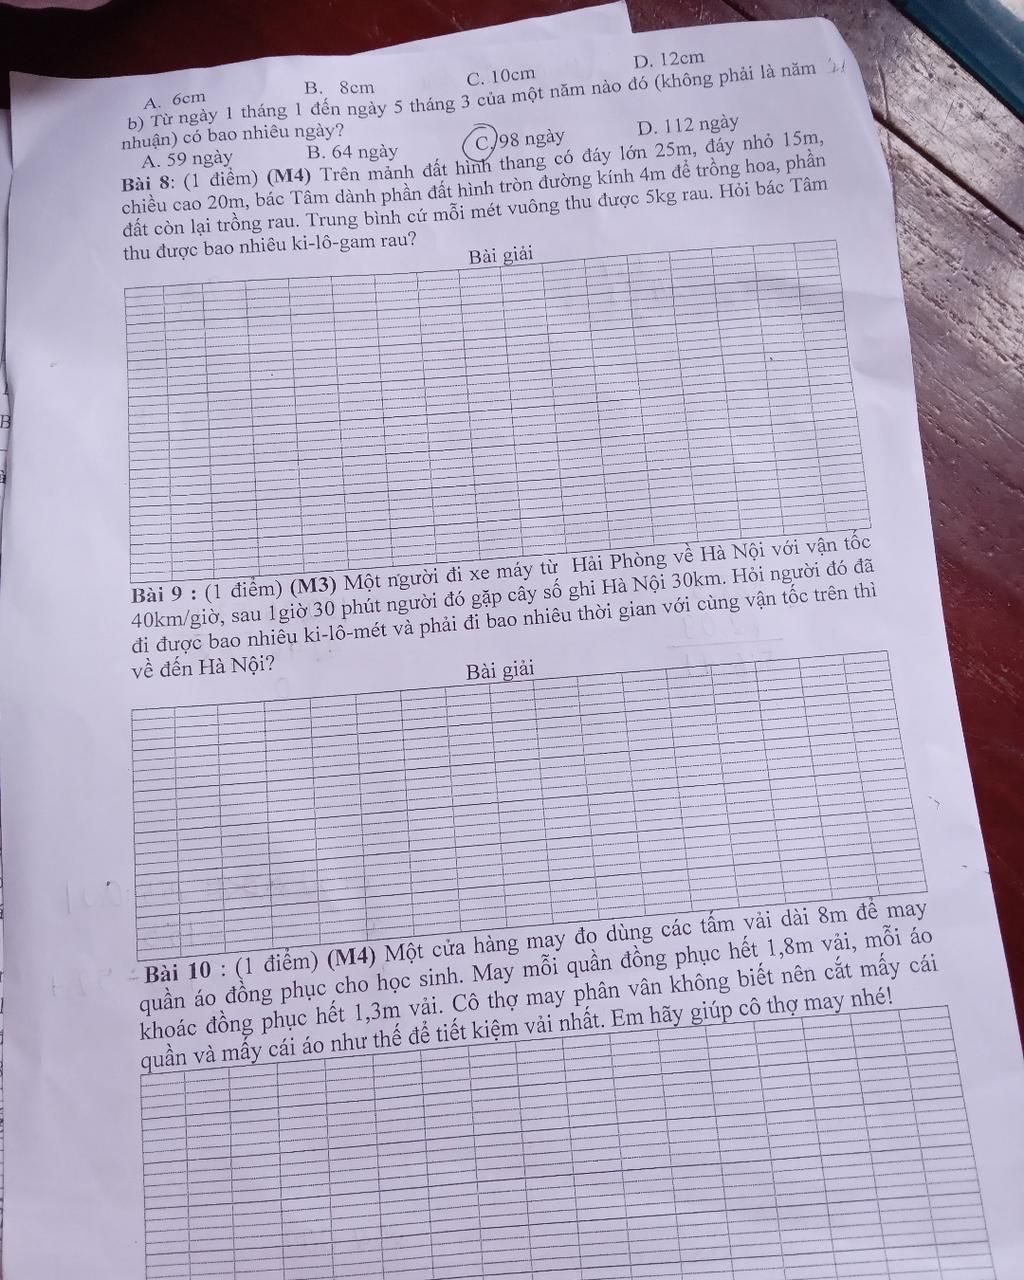 A. 6cm B. 8cm C. 10cm D. 12cm
b) Từ ngày 1 tháng 1 đến ngày 5 tháng 3 của một năm nào đó (không phải là năm
nhuận) có bao nhiêu ngày?
A. 59 ngày B. 64 ngày C. 98 ngày D. 112 ngày
Bài 8: (1 điểm) (M4) Trên mảnh đất hình thang có đáy lớn 25m, đáy nhỏ 15m,
chiều cao 20m, bác Tâm dành phần đất hình tròn đường kính 4m để trồng hoa, phần
đất còn lại trồng rau. Trung bình cứ mỗi mét vuông thu được 5kg rau. Hỏi bác Tâm
thu được bao nhiêu ki-lô-gam rau?
Bài giải
Bài 9 : (1 điểm) (M3) Một người đi xe máy từ Hải Phòng về Hà Nội với vận tốc
40km/giờ, sau 1giờ 30 phút người đó gặp cây số ghi Hà Nội 30km. Hỏi người đó đã
đi được bao nhiêu ki-lô-mét và phải đi bao nhiêu thời gian với cùng vận tốc trên thì
về đến Hà Nội?
Bài giải
Bài 10 : (1 điểm) (M4) Một cửa hàng may đo dùng các tấm vải dài 8m để may
quần áo đồng phục cho học sinh. May mỗi quần đồng phục hết 1,8m vải, mỗi áo
khoác đồng phục hết 1,3m vải. Cô thợ may phân vân không biết nên cắt mấy cái
quần và mấy cái áo như thế để tiết kiệm vải nhất. Em hãy giúp cô thợ may nhé!